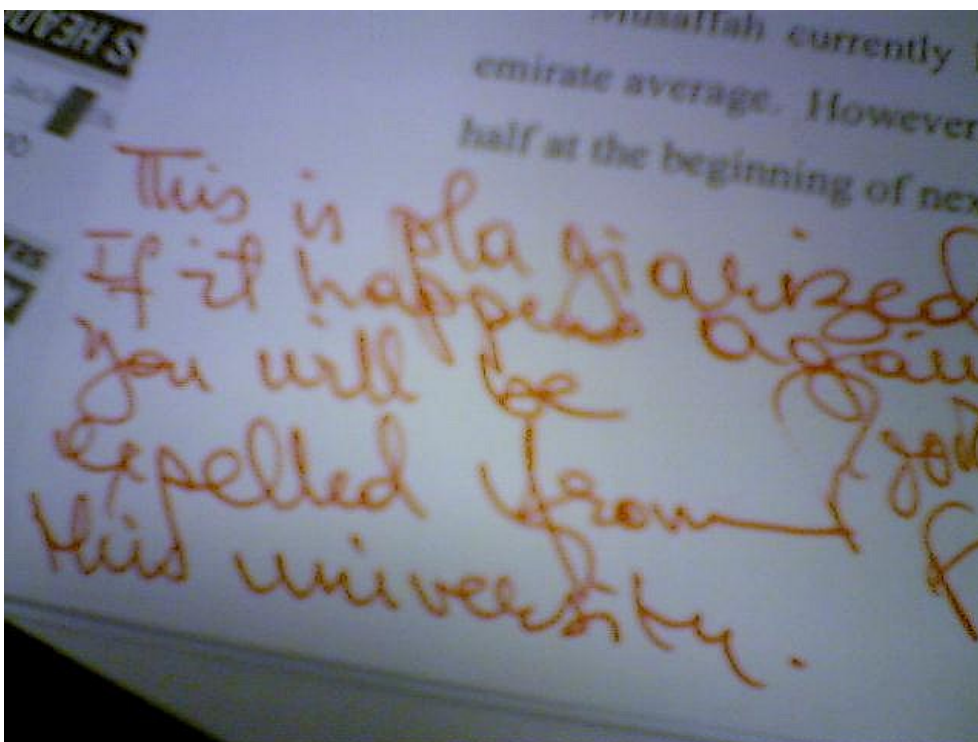 S HEAD
Musaffah currently
emirate average. However
half at the beginning of nex
This is plagiarized
If it happens again
you will be
expelled from
this university.
you